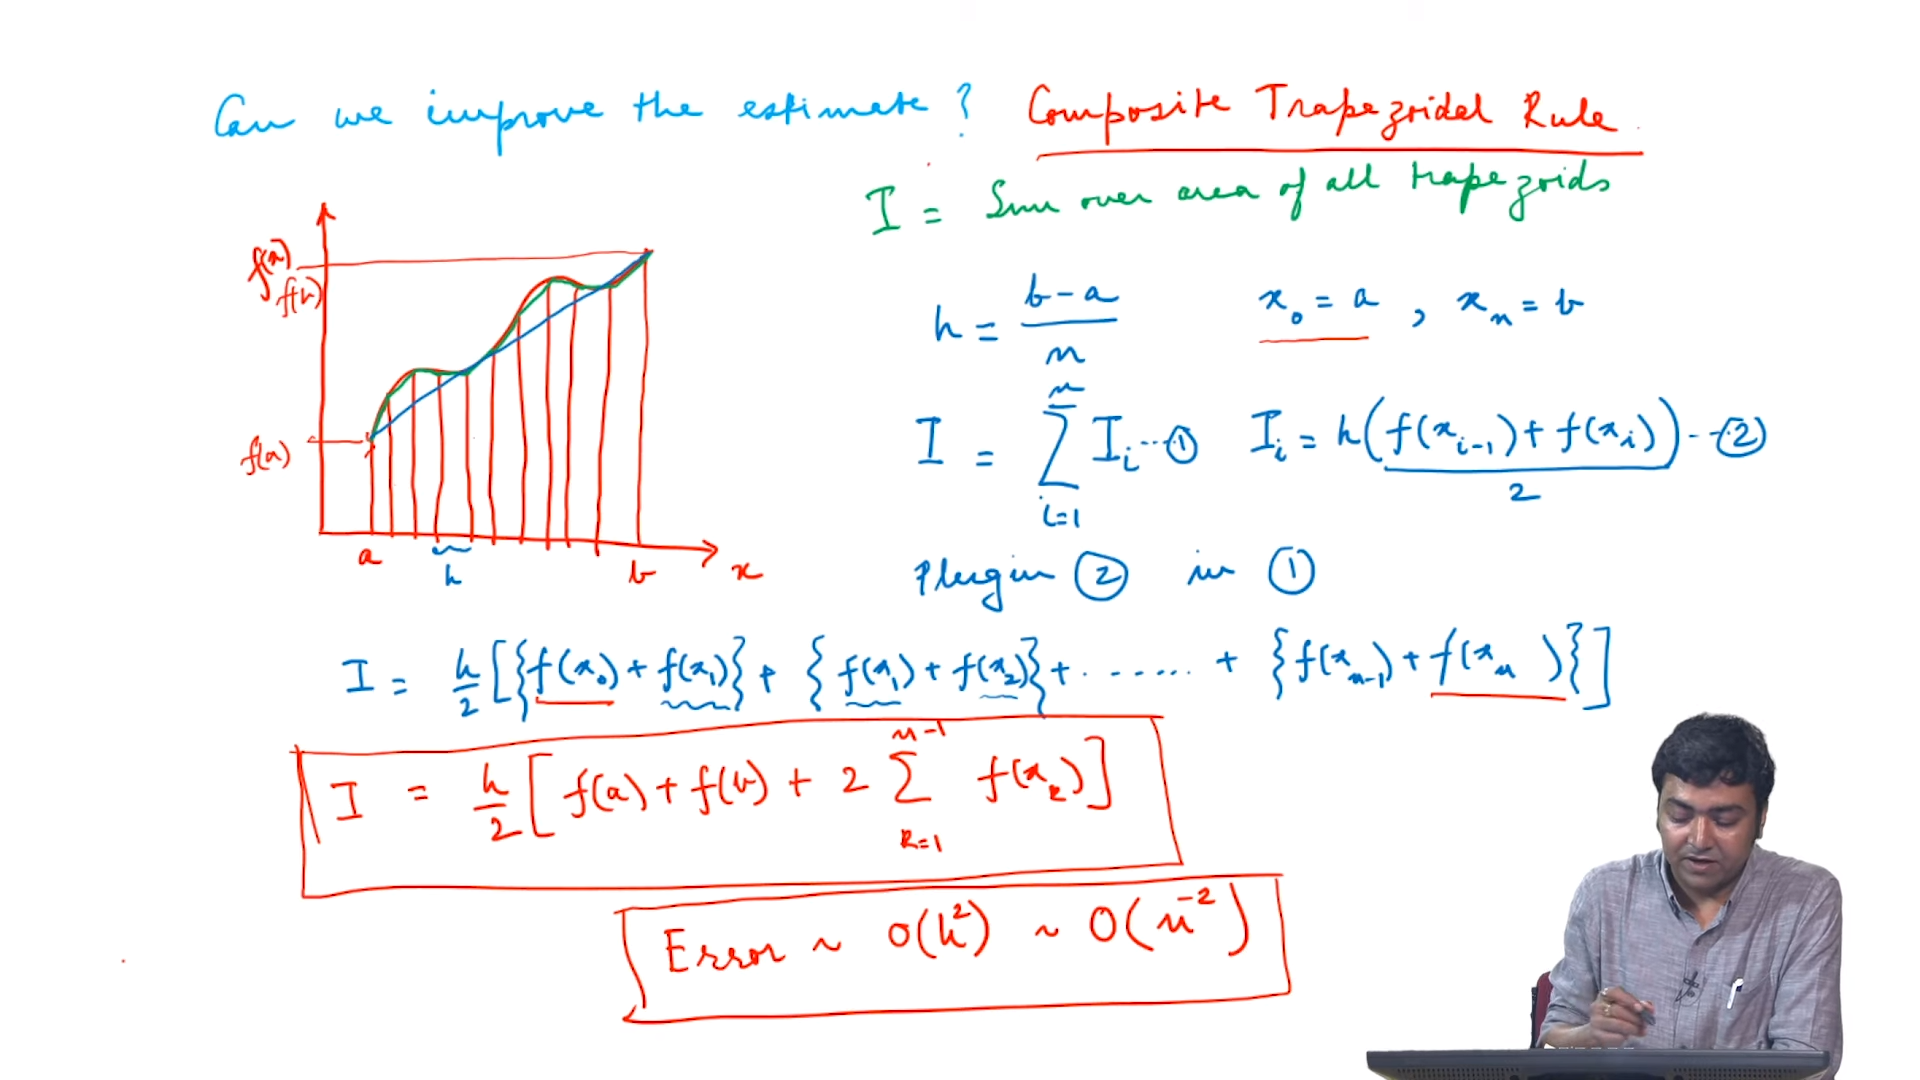 Can we improve the estimate? Composite Trapezoidal Rule
I = Sum over area of all trapezoids
f(x)
f(b)
f(a)
a
h
b
x
h = b-a / n    x₀ = a , xₙ = b
I = Σ_{i=1}^{n} Iᵢ ...① Iᵢ = h(f(xᵢ₋₁) + f(xᵢ)) / 2 ...②
Plugin ② in ①
I = h/2 [{f(x₀) + f(x₁)} + {f(x₁) + f(x₂)} + ....... + {f(xₙ₋₁) + f(xₙ)}]
I = h/2 [f(a) + f(b) + 2 Σ_{k=1}^{n-1} f(xₖ)]
Error ~ O(h²) ~ O(n⁻²)